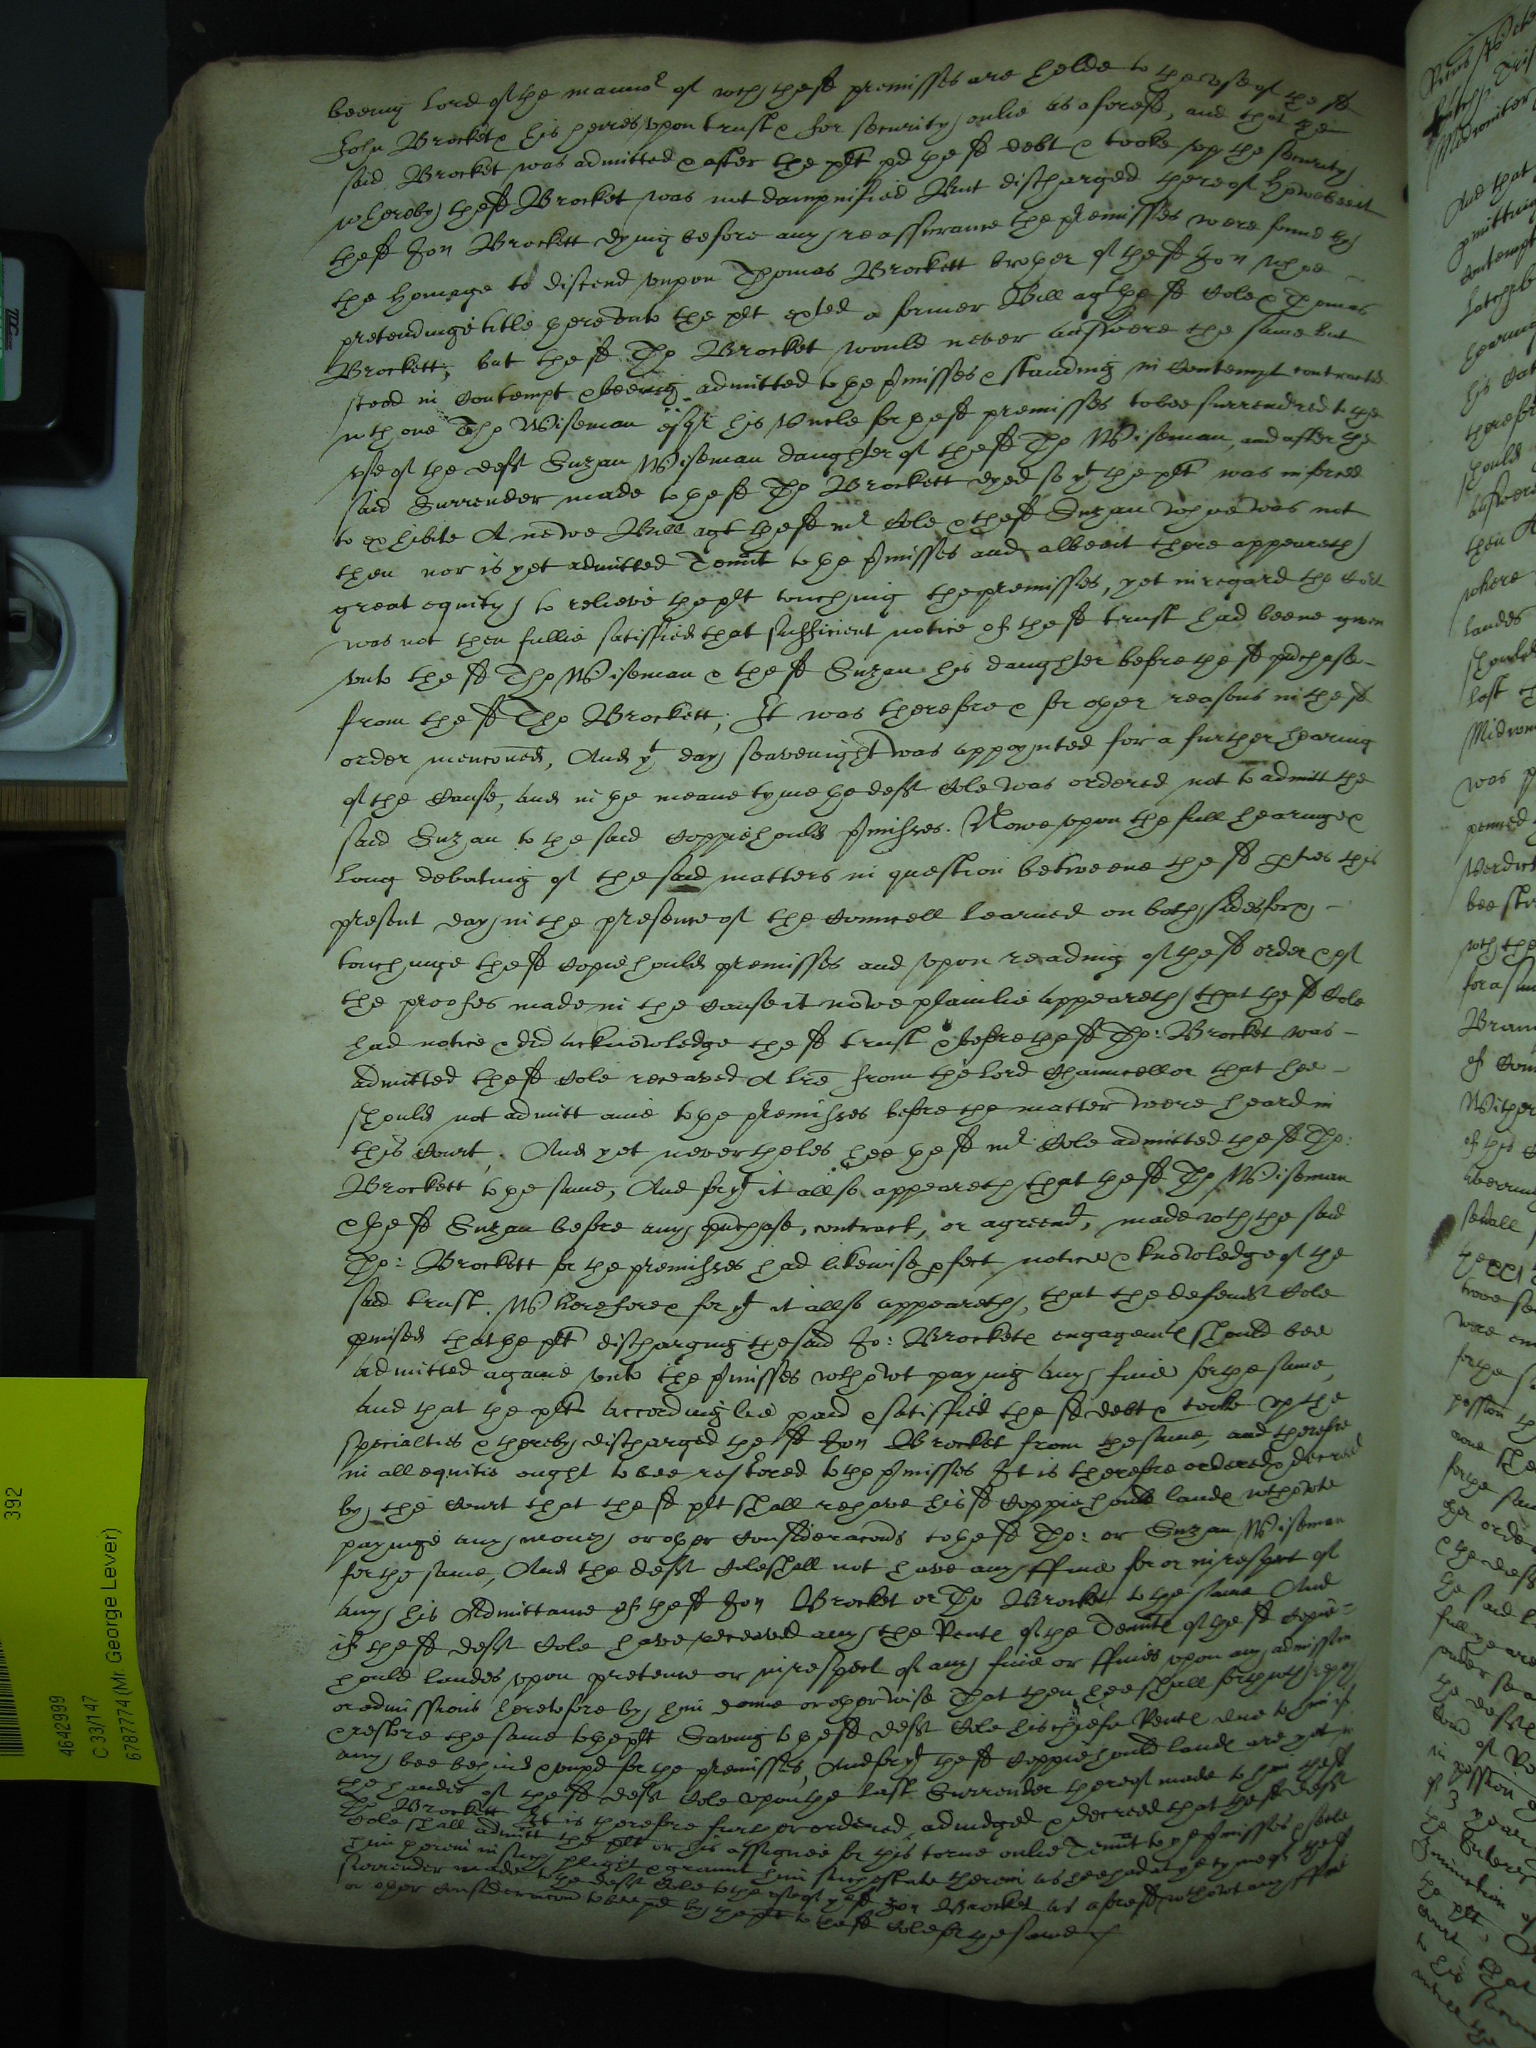 beeing Lord of the mannor of wch the sd premisses are helde to the use of the sd
John Brockett & his heires upon trust & for security onlie as aforesd, and that the
said Brocket was admitted & after the plt pd the sd debt & tooke upp the security
whereby the sd Brocket was not dampnified But discharged thereof Howbeeit
the sd Jon Brockett dying before any reassurance the premisses were found by
the homage to discend unpon Thomas Brockett brother of the sd Jon whoe
pretendinge title hereunto the plt exted a former Bill agt the sd Cole & Thomas
Brockett, but the sd Tho Brocket would never answere the same but
stood in Contempt & beeing admitted to the pmisses & standing in Contempt contracted
wth one Tho Wiseman esqr his Uncle for the sd premisses to bee surrendred to the
use of the deft Suzan Wiseman daughter of the sd Tho Wiseman, and after the
said Surrender made to the sd Tho Brockett dyed so yt the plt was inforced
to exhibite A newe Bill agt the sd mr Cole & the sd Suzan whoe was not
then nor is yet admitted Tennt to the pmisses and albeeit there appeareth
great equity to relieve the plt touching the premisses, yet in regard the Cort
was not then fullie satisfied that sufficient notice of the sd trust had beene given
unto the sd Tho Wiseman & the sd Suzan his daughter before the sd purchase
from the sd Tho Brockett; It was therefore & for other reasons in the sd
order menconed, And yt day seavenight was appoynted for a further hearing
of the Cause, and in the meane tyme the deft Cole was ordered not to admitt the
said Suzan to the said Coppiehould pmisses. Nowe upon the full hearinge &
long debating of the said matters in question betweene the sd pties this
present day in the presence of the Councell learned on both sides for &
touchinge the sd Copiehould premisses and upon reading of the sd order & of
the proofes made in the Cause it nowe plainlie appeareth that the sd Cole
had notice & did acknowledge the sd trust & before the sd Tho: Brocket was
admitted the sd Cole receaved A lre from the Lord Chauncellor that hee
should not admitt anie to the premisses before the matter were heard in
this Court, And yet neverthelesse hee the sd mr Cole admitted the sd Tho:
Brockett to the same, And for yt it allso appeareth that the sd Tho Wiseman
& the sd Suzan before any purchase, contract, or agreemt, made wth the said
Tho: Brockett for the premisses had likewise pfect notice & knowledge of the
said trust. Wherefore & for yt it allso appeareth, that the defendt Cole
pmised that the plt discharging the said Jo: Brockets engagemts should bee
admitted againe unto the pmisses wthowt paying any fine for the same,
And that the plt accordinglie paid & satisfied the sd debt & tooke up the
specialties & thereby discharged the sd Jon Brocket from the same, and therefore
in all equitie ought to bee restored to the pmisses It is therefore ordered & decreed
by the Court that the sd plt shall rehave his sd Coppiehould lands wthowte
payinge any money or other Consideracons to the sd Tho: or Suzan Wiseman
for the same, And the deft Cole shall not have any ffine for or in respect of
any his Admittance of the sd Jon Brocket or Tho Brocket to the same And
if the sd deft Cole have receaved any the Rents of the Tennts of the sd Copie=
hould landes upon pretence or in respect of any fine or ffines upon any admission
or admissions heretofore by him donne or otherwise That then hee shall forthwth repay
& restore the same to the plt Saving to the sd deft Cole his chiefe Rents due to him if
any bee behind & unpd for the premisses, And for yt the sd Coppiehould lands are yet in
the handes of the sd deft Cole upon the last Surrender thereof made to him the sd
Tho Brockett It is therefore further ordered, adiudged & decreed that the sd deft
Cole shall admitt the plt or his assignee for this torne onlie Tennt to the pmisses & setle
him therein in such plight & graunt him such estate therein as hee had at the tyme of the sd
surrender made to the deft Cole to the use of the sd Jon Brocket as aforesd wthowt any ffine
or other Consideracion to bee pd by the plt to the sd Cole for the same
392
4642999
C 33/147
6787774 (Mr. George Lever)